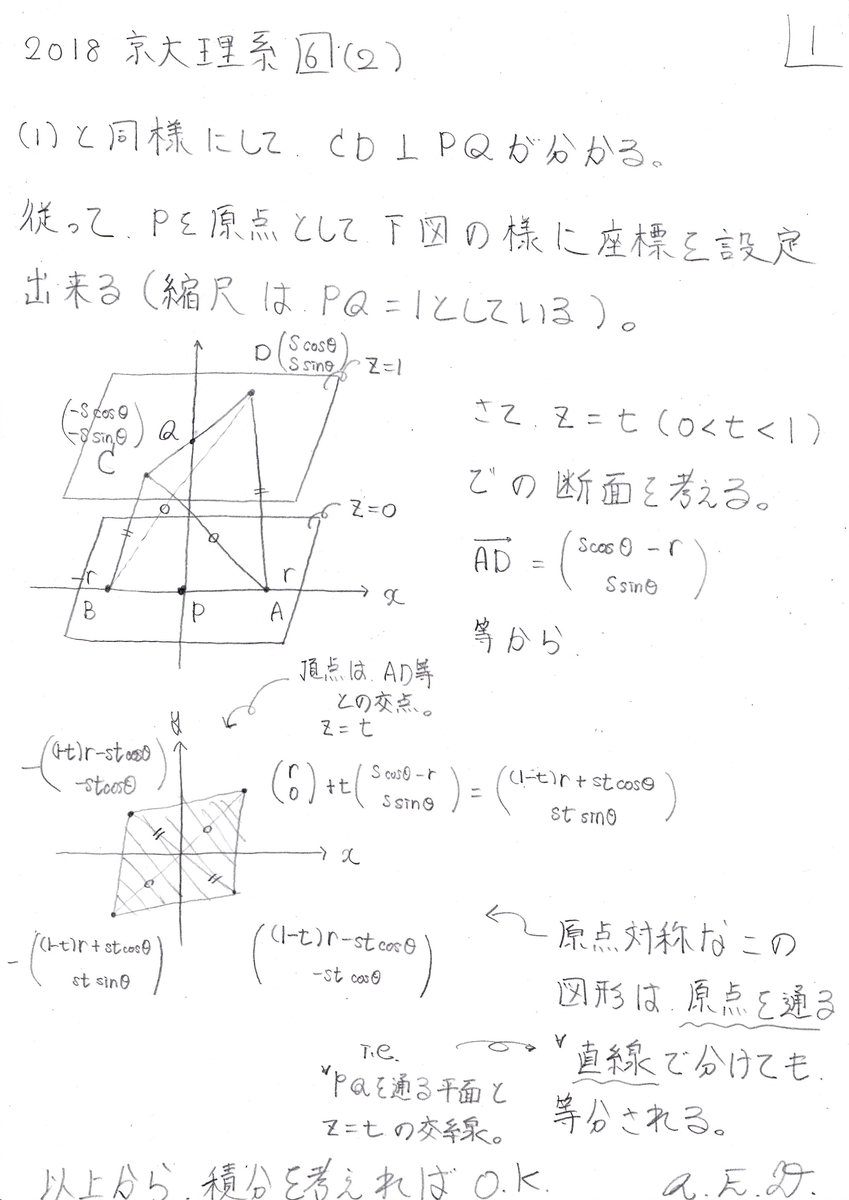 2018 京大理系 6 (2)
1
(1)と同様にして、CD⊥PQが分かる。
従って、Pを原点として下図の様に座標を設定
出来る(縮尺は、PQ=1としている)。
D (s cosθ
s sinθ)
z=1
(-s cosθ
-s sinθ)
Q
C
z=0
-r
r
x
B
P
A
さて、z=t (0<t<1)
での断面を考える。
AD = (s cosθ - r
s sinθ)
等から、
頂点は、AD等
との交点。
z=t
y
-((1-t)r-st cosθ
-st cosθ)
(r
0) + t (s cosθ-r
s sinθ) = ((1-t)r+st cosθ
st sinθ)
x
-((1-t)r+st cosθ
st sinθ)
((1-t)r-st cosθ
-st cosθ)
原点対称なこの
図形は、原点を通る
∀直線で分けても、
等分される。
i.e.
∀PQを通る平面と
z=tの交線。
以上から、積分を考えれば O.K.
Q.E.D.